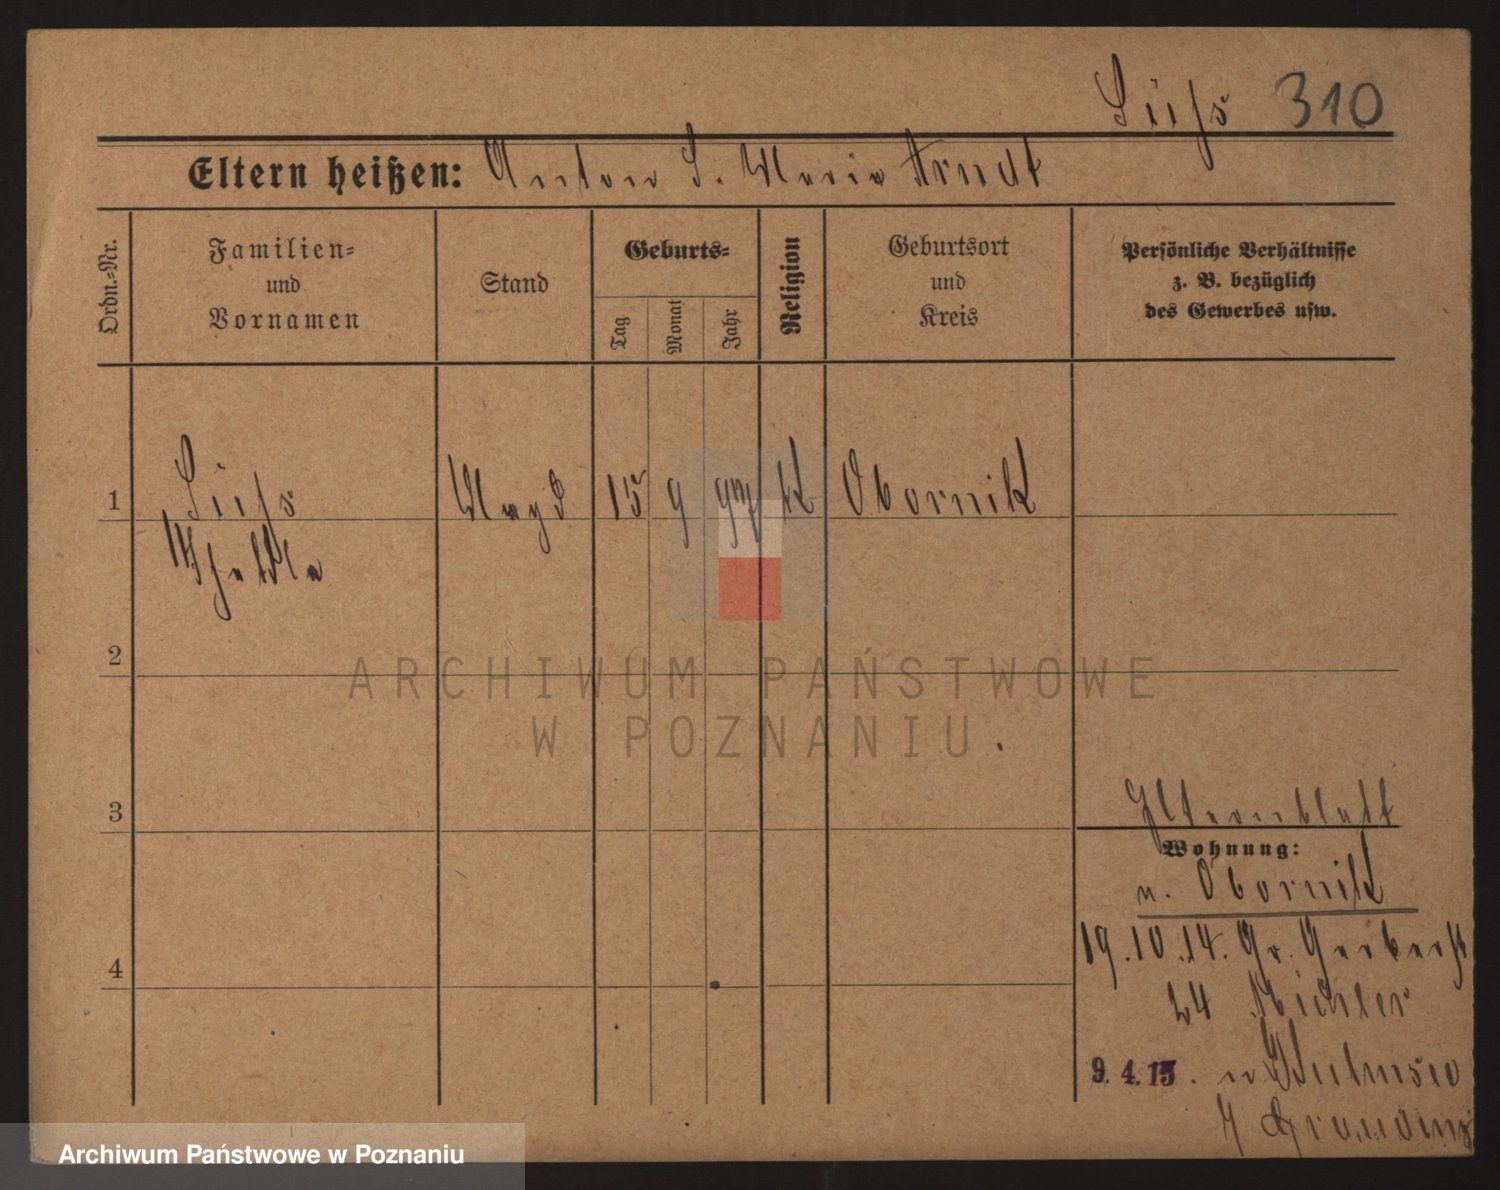 Süss 310
Eltern heißen: Anton S. Maria Arndt
Ordn.-Nr.
Familien-
und
Vornamen
Stand
Geburts-
Tag
Monat
Jahr
Religion
Geburtsort
und
Kreis
Persönliche Verhältnisse
z. B. bezüglich
des Gewerbes usw.
1 Süss Magd 15 9 97 K Obornik
2
3
4
Elternblatt
Wohnung:
n. Obornik
19.10.14. Gr. Gerberst
24
9.4.15. n
ARCHIWUM PAŃSTWOWE
W POZNANIU
Archiwum Państwowe w Poznaniu